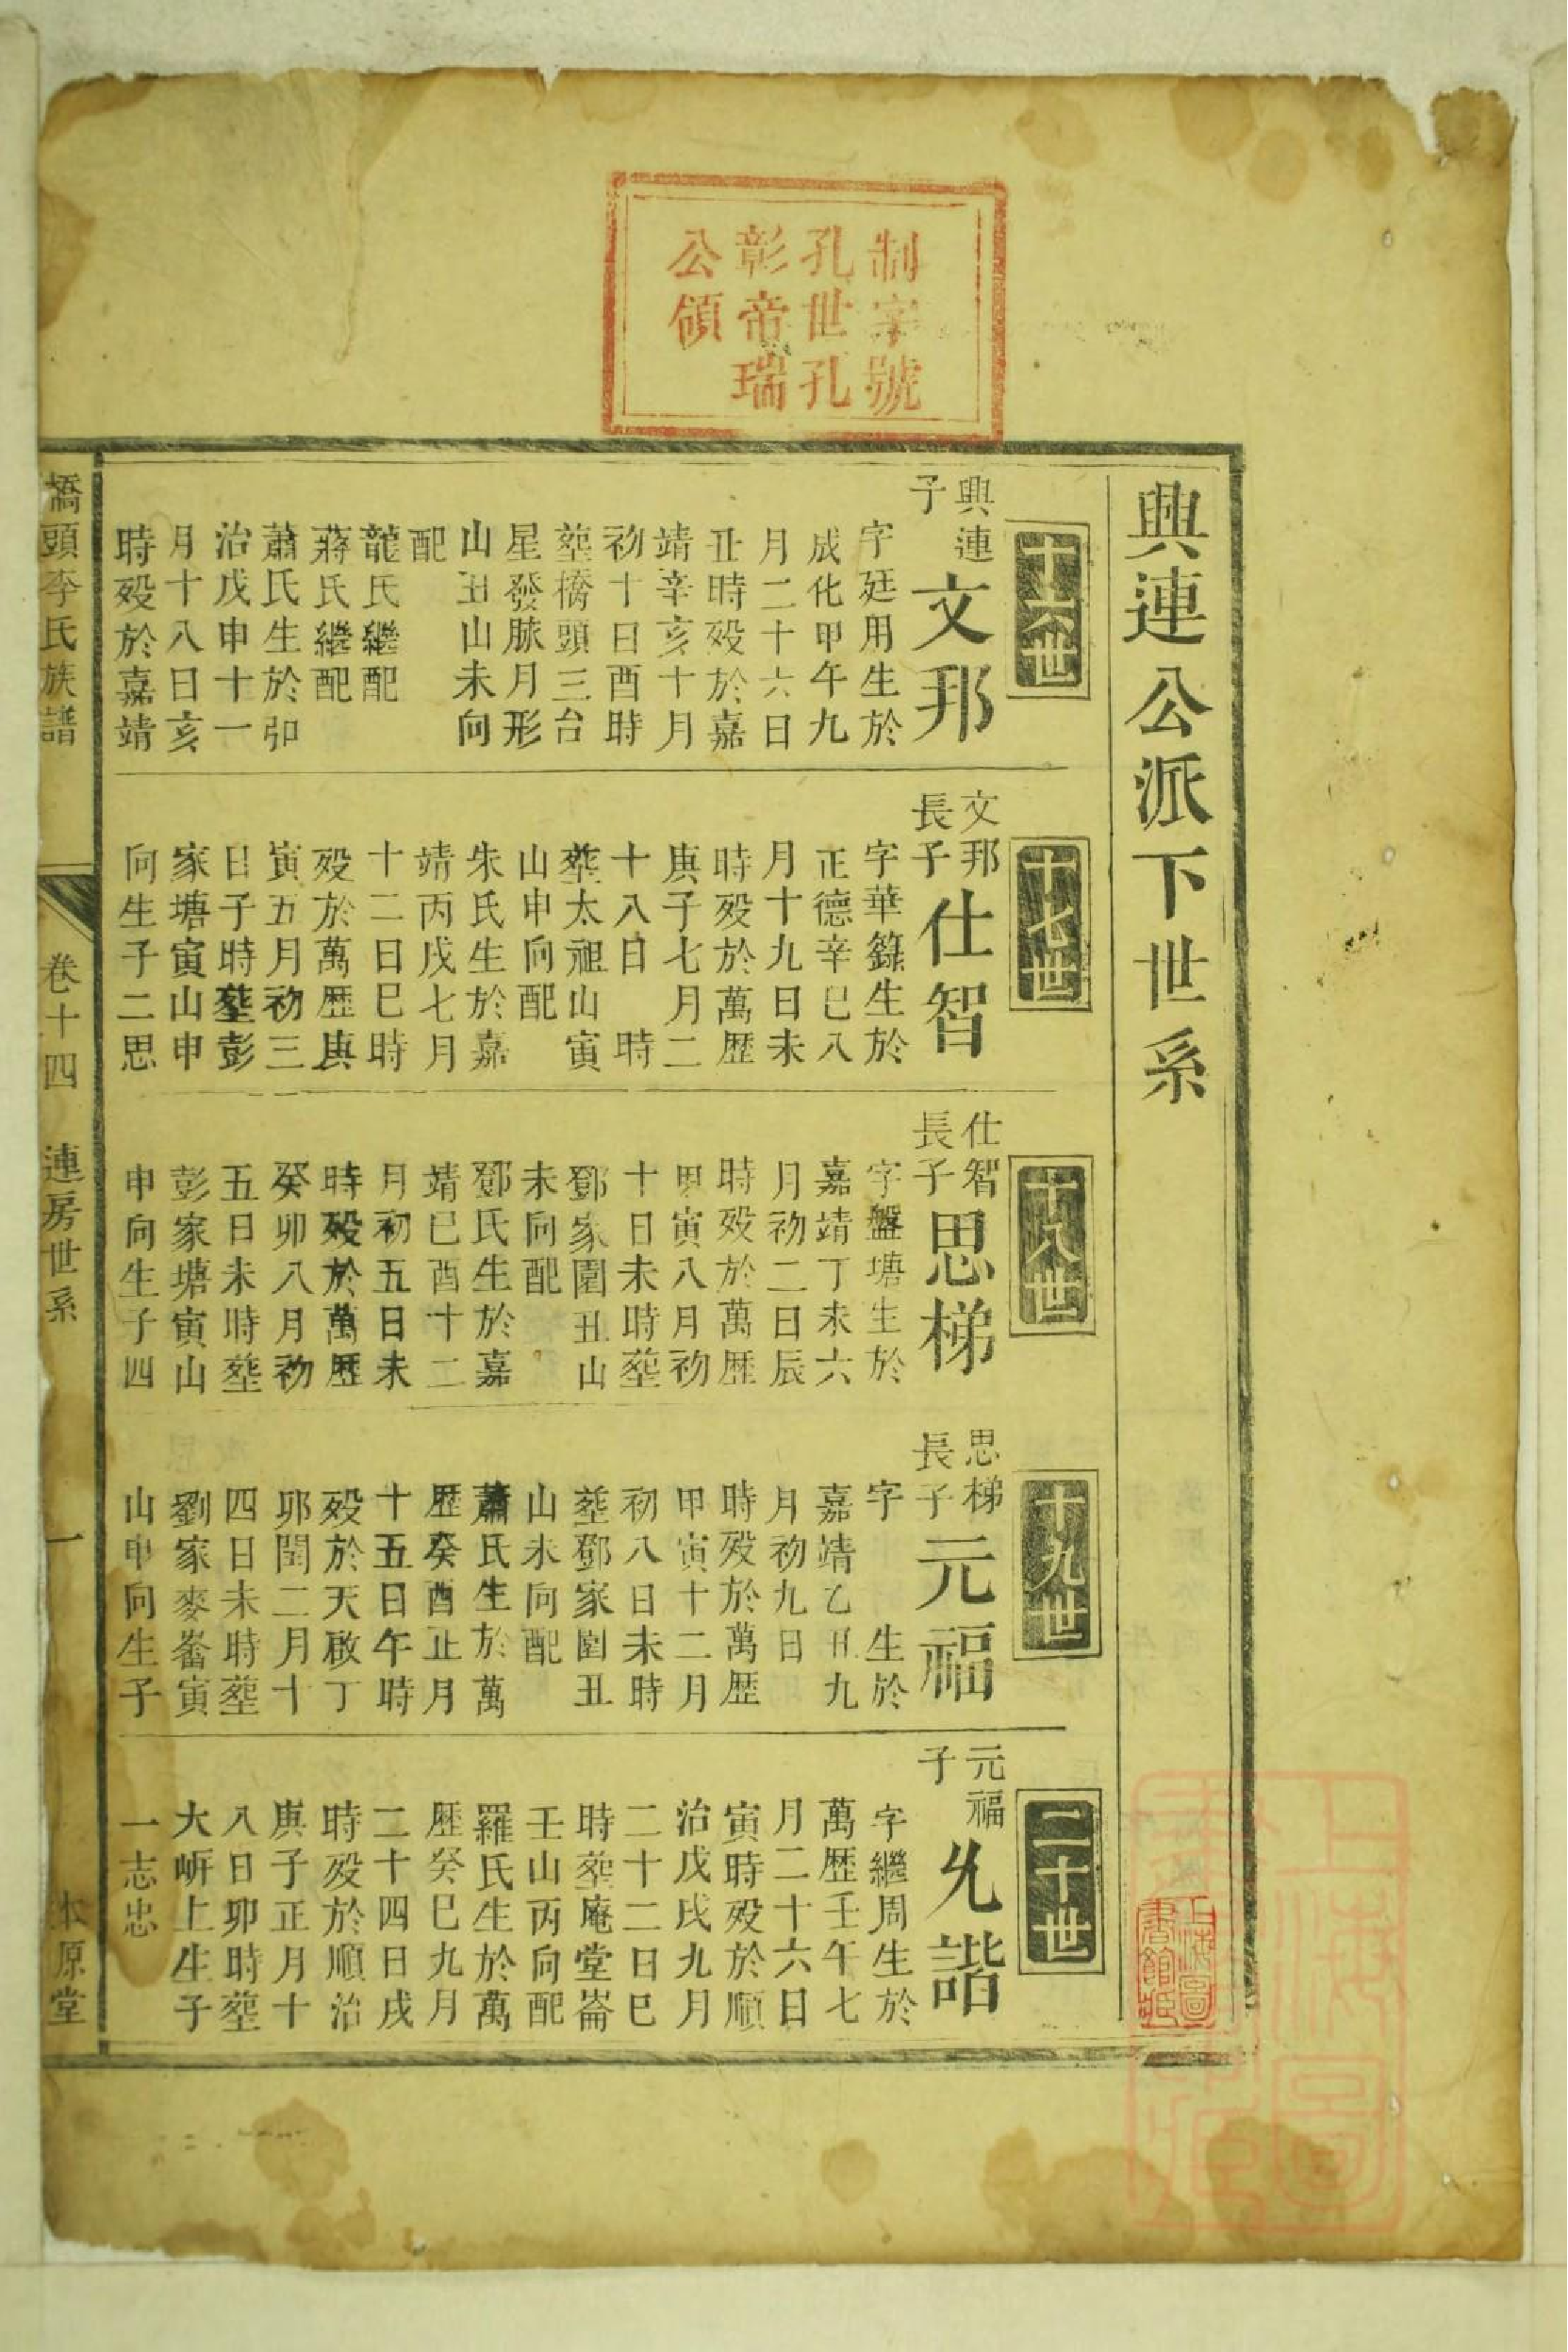 制字號
孔世孔
彰帝瑞
公領
興連公派下世系
十六世
興連
子
文邦
字廷用生於
成化甲午九
月二十六日
丑時歿於嘉
靖辛亥十月
初十日酉時
塟橋頭三台
星發脉月形
山丑山未向
配
龍氏繼配
蔣氏繼配
蕭氏生於卯
治戊申十一
月十八日亥
時歿於嘉靖
十七世
文邦
長子
仕智
字華籙生於
正德辛巳八
月十九日未
時歿於萬歴
庚子七月二
十八日 時
塟太祖山寅
山申向配
朱氏生於嘉
靖丙戌七月
十二日巳時
歿於萬歴庚
寅五月初三
日子時塟彭
家塘寅山申
向生子二思
十八世
仕智
長子
思梯
字盤塘生於
嘉靖丁未六
月初二日辰
時歿於萬歴
甲寅八月初
十日未時塟
鄧家園丑山
未向配
鄧氏生於嘉
靖巳酉十二
月初五日未
時歿於萬歴
癸卯八月初
五日未時塟
彭家塘寅山
申向生子四
十九世
思梯
長子
元福
字 生於
嘉靖乙丑九
月初九日
時歿於萬歴
甲寅十二月
初八日未時
塟鄧家園丑
山未向配
蕭氏生於萬
歴癸酉正月
十五日午時
歿於天啟丁
卯閏二月十
四日未時塟
劉家麥崙寅
山申向生子
二十世
元福
子
允諧
字繼周生於
萬歴壬午七
月二十六日
寅時歿於順
治戊戌九月
二十二日巳
時塟庵堂崙
壬山丙向配
羅氏生於萬
歴癸巳九月
二十四日戌
時歿於順治
庚子正月十
八日卯時塟
大岍上生子
一志忠
橋頭李氏族譜
卷十四
連房世系
一
本原堂
上海圖
書館藏